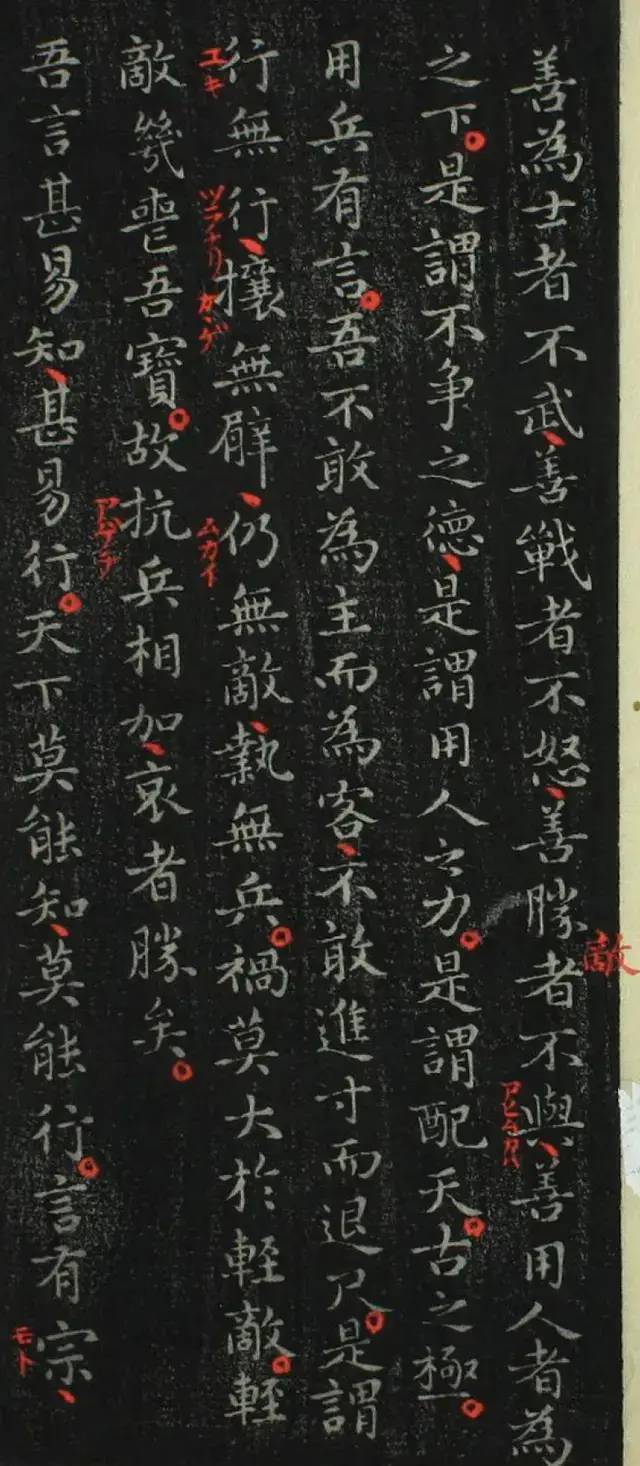 敵
善為士者不武、善戰者不怒、善勝者不與、善用人者為
之下。是謂不争之德、是謂用人之力。是謂配天。古之極。
用兵有言。吾不敢為主而為客、不敢進寸而退尺。是謂
ユキ
ツラナリ
カヽゲ
ムカイ
行無行、攘無臂、仍無敵、執無兵。禍莫大於輕敵。輕
アゲテ
敵幾喪吾寶。故抗兵相加、哀者勝矣。
モト
吾言甚易知、甚易行。天下莫能知、莫能行。言有宗、